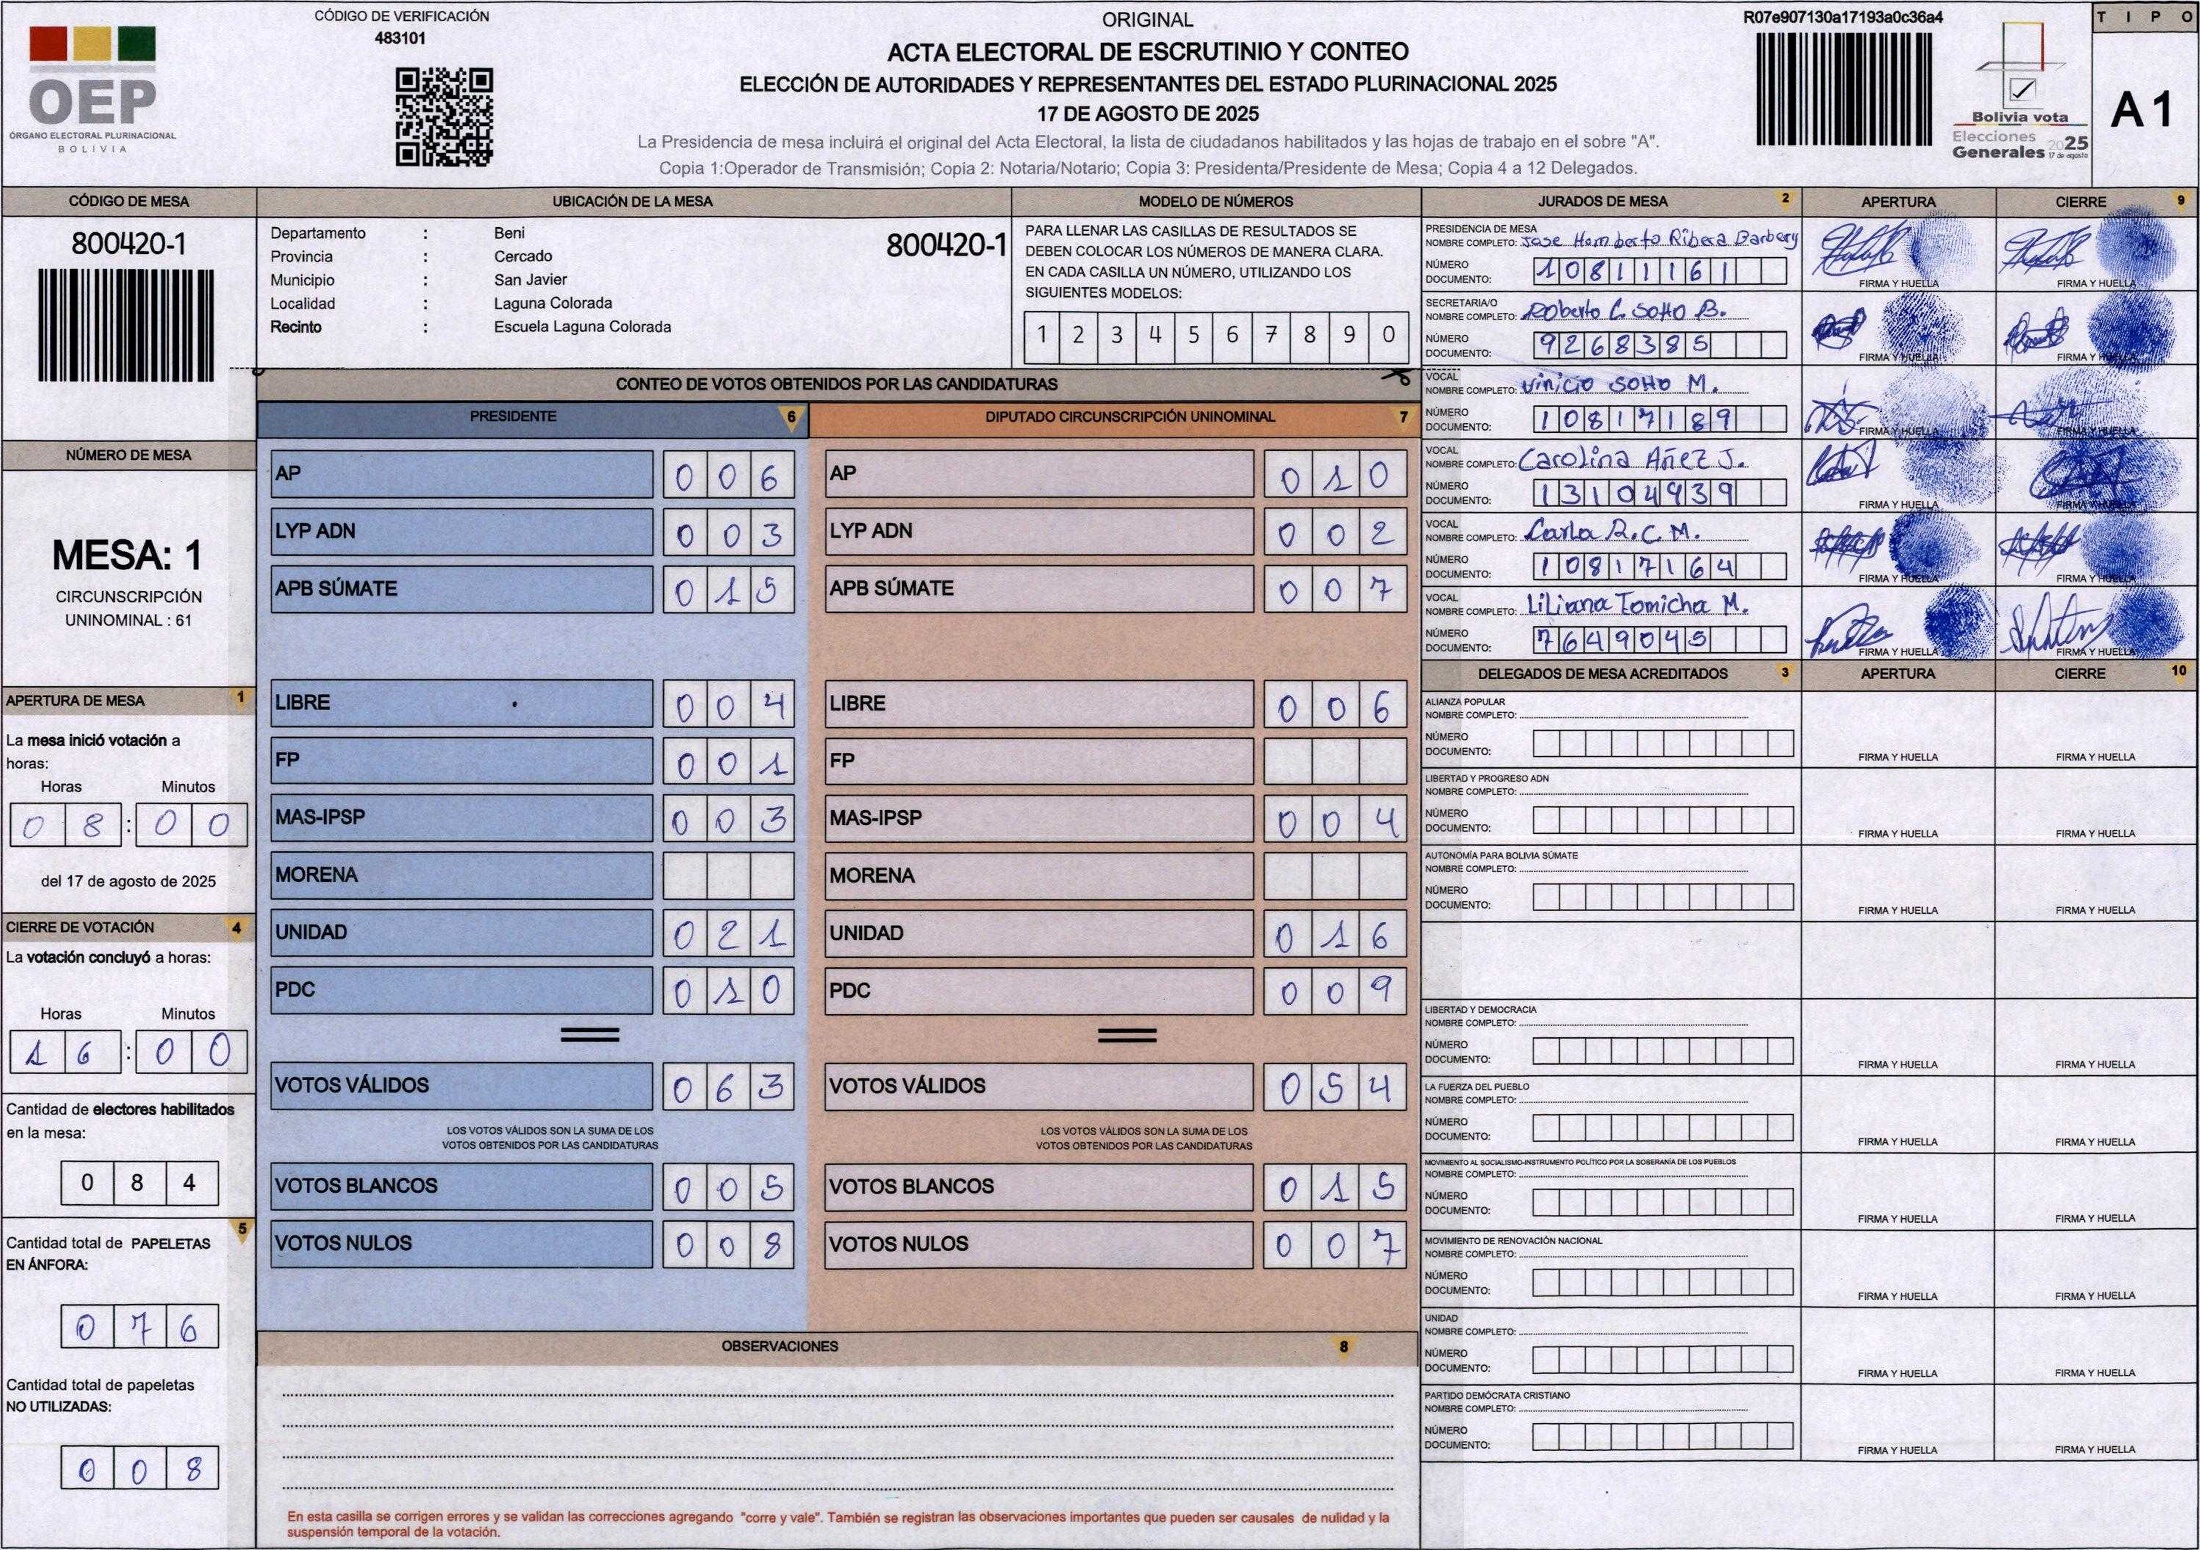 OEP
ÓRGANO ELECTORAL PLURINACIONAL
BOLIVIA
CÓDIGO DE VERIFICACIÓN
483101
ORIGINAL
ACTA ELECTORAL DE ESCRUTINIO Y CONTEO
ELECCIÓN DE AUTORIDADES Y REPRESENTANTES DEL ESTADO PLURINACIONAL 2025
17 DE AGOSTO DE 2025
La Presidencia de mesa incluirá el original del Acta Electoral, la lista de ciudadanos habilitados y las hojas de trabajo en el sobre "A".
Copia 1:Operador de Transmisión; Copia 2: Notaria/Notario; Copia 3: Presidenta/Presidente de Mesa; Copia 4 a 12 Delegados.
R07e907130a17193a0c36a4
Bolivia vota
Elecciones
Generales 2025
17 de agosto
TIPO
A 1
CÓDIGO DE MESA
800420-1
UBICACIÓN DE LA MESA
Departamento : Beni
800420-1
Provincia : Cercado
Municipio : San Javier
Localidad : Laguna Colorada
Recinto : Escuela Laguna Colorada
MODELO DE NÚMEROS
PARA LLENAR LAS CASILLAS DE RESULTADOS SE
DEBEN COLOCAR LOS NÚMEROS DE MANERA CLARA.
EN CADA CASILLA UN NÚMERO, UTILIZANDO LOS
SIGUIENTES MODELOS:
1 2 3 4 5 6 7 8 9 0
NÚMERO DE MESA
MESA: 1
CIRCUNSCRIPCIÓN
UNINOMINAL : 61
APERTURA DE MESA 1
La mesa inició votación a
horas:
Horas Minutos
0 8 : 0 0
del 17 de agosto de 2025
CIERRE DE VOTACIÓN 4
La votación concluyó a horas:
Horas Minutos
1 6 : 0 0
Cantidad de electores habilitados
en la mesa:
0 8 4
5
Cantidad total de PAPELETAS
EN ÁNFORA:
0 7 6
Cantidad total de papeletas
NO UTILIZADAS:
0 0 8
CONTEO DE VOTOS OBTENIDOS POR LAS CANDIDATURAS
PRESIDENTE 6
AP 0 0 6
LYP ADN 0 0 3
APB SÚMATE 0 1 5
LIBRE 0 0 4
FP 0 0 1
MAS-IPSP 0 0 3
MORENA
UNIDAD 0 2 1
PDC 0 1 0
VOTOS VÁLIDOS 0 6 3
LOS VOTOS VÁLIDOS SON LA SUMA DE LOS
VOTOS OBTENIDOS POR LAS CANDIDATURAS
VOTOS BLANCOS 0 0 5
VOTOS NULOS 0 0 8
DIPUTADO CIRCUNSCRIPCIÓN UNINOMINAL 7
AP 0 1 0
LYP ADN 0 0 2
APB SÚMATE 0 0 7
LIBRE 0 0 6
FP
MAS-IPSP 0 0 4
MORENA
UNIDAD 0 1 6
PDC 0 0 9
VOTOS VÁLIDOS 0 5 4
LOS VOTOS VÁLIDOS SON LA SUMA DE LOS
VOTOS OBTENIDOS POR LAS CANDIDATURAS
VOTOS BLANCOS 0 1 5
VOTOS NULOS 0 0 7
OBSERVACIONES 8
En esta casilla se corrigen errores y se validan las correcciones agregando "corre y vale". También se registran las observaciones importantes que pueden ser causales de nulidad y la
suspensión temporal de la votación.
JURADOS DE MESA 2 APERTURA CIERRE 9
PRESIDENCIA DE MESA
NOMBRE COMPLETO: Jose Homberto Ribera Barbery
NÚMERO
DOCUMENTO: 10811161
FIRMA Y HUELLA FIRMA Y HUELLA
SECRETARIA/O
NOMBRE COMPLETO: Roberto C. Sotto B.
NÚMERO
DOCUMENTO: 9268385
FIRMA Y HUELLA FIRMA Y HUELLA
VOCAL
NOMBRE COMPLETO: Vinicio Sotto M.
NÚMERO
DOCUMENTO: 10817189
FIRMA Y HUELLA FIRMA Y HUELLA
VOCAL
NOMBRE COMPLETO: Carolina Añez J.
NÚMERO
DOCUMENTO: 13104939
FIRMA Y HUELLA FIRMA Y HUELLA
VOCAL
NOMBRE COMPLETO: Carla R.C.M.
NÚMERO
DOCUMENTO: 10817164
FIRMA Y HUELLA FIRMA Y HUELLA
VOCAL
NOMBRE COMPLETO: Liliana Tomicha M.
NÚMERO
DOCUMENTO: 7649045
FIRMA Y HUELLA FIRMA Y HUELLA
DELEGADOS DE MESA ACREDITADOS 3 APERTURA CIERRE 10
ALIANZA POPULAR
NOMBRE COMPLETO:
NÚMERO
DOCUMENTO:
FIRMA Y HUELLA FIRMA Y HUELLA
LIBERTAD Y PROGRESO ADN
NOMBRE COMPLETO:
NÚMERO
DOCUMENTO:
FIRMA Y HUELLA FIRMA Y HUELLA
AUTONOMÍA PARA BOLIVIA SÚMATE
NOMBRE COMPLETO:
NÚMERO
DOCUMENTO:
FIRMA Y HUELLA FIRMA Y HUELLA
LIBERTAD Y DEMOCRACIA
NOMBRE COMPLETO:
NÚMERO
DOCUMENTO:
FIRMA Y HUELLA FIRMA Y HUELLA
LA FUERZA DEL PUEBLO
NOMBRE COMPLETO:
NÚMERO
DOCUMENTO:
FIRMA Y HUELLA FIRMA Y HUELLA
MOVIMIENTO AL SOCIALISMO-INSTRUMENTO POLÍTICO POR LA SOBERANÍA DE LOS PUEBLOS
NOMBRE COMPLETO:
NÚMERO
DOCUMENTO:
FIRMA Y HUELLA FIRMA Y HUELLA
MOVIMIENTO DE RENOVACIÓN NACIONAL
NOMBRE COMPLETO:
NÚMERO
DOCUMENTO:
FIRMA Y HUELLA FIRMA Y HUELLA
UNIDAD
NOMBRE COMPLETO:
NÚMERO
DOCUMENTO:
FIRMA Y HUELLA FIRMA Y HUELLA
PARTIDO DEMÓCRATA CRISTIANO
NOMBRE COMPLETO:
NÚMERO
DOCUMENTO:
FIRMA Y HUELLA FIRMA Y HUELLA